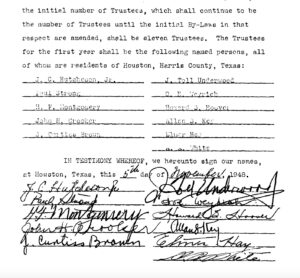 the initial number of Trustees, which shall continue to be
the number of Trustees until the initial By-Laws in that
respect are amended, shall be eleven Trustees. The Trustees
for the first year shall be the following named persons, all
of whom are residents of Houston, Harris County, Texas:
J. C. Hutcheson, Jr. J. Toll Underwood
Paul Strong
H. F. Montgomery Howard S. Hoover
John H. Crooker Allen S. Key
J. Curtiss Brown Elmer Hay
White
IN TESTIMONY WHEREOF, we hereunto sign our names,
at Houston, Texas, this 5th day of November, 1948.
J C Hutcheson Jr Underwood
Paul Strong
H F Montgomery Howard S Hoover
John H Crooker
J. Curtiss Brown Elmer Hay
White